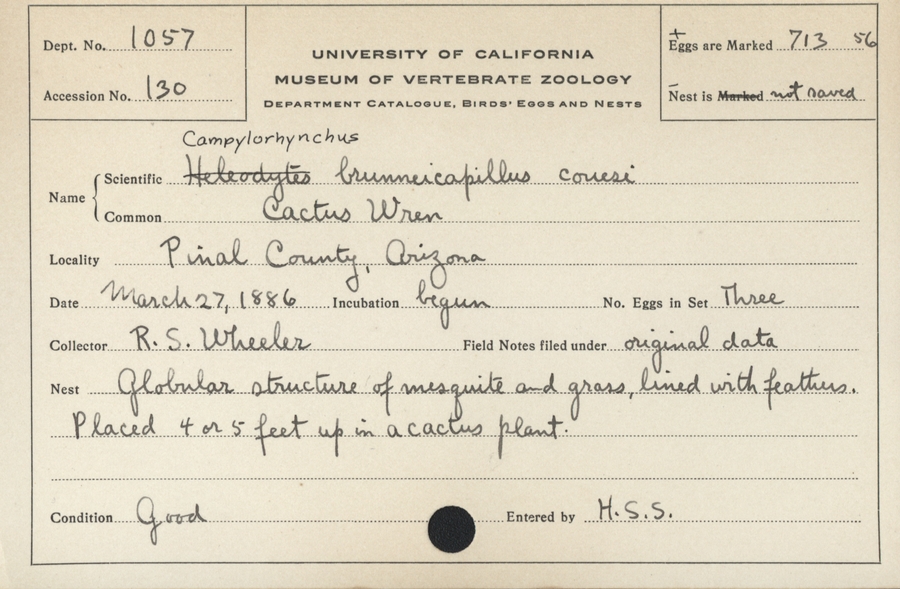 Dept. No. 1057
Accession No. 130
UNIVERSITY OF CALIFORNIA
MUSEUM OF VERTEBRATE ZOOLOGY
DEPARTMENT CATALOGUE, BIRDS' EGGS AND NESTS
+
Eggs are Marked 713 56
–
Nest is Marked not saved
Campylorhynchus
Name Scientific Heleodytes brunneicapillus couesi
Common Cactus Wren
Locality Pinal County, Arizona
Date March 27, 1886 Incubation begun No. Eggs in Set Three
Collector R. S. Wheeler Field Notes filed under original data
Nest Globular structure of mesquite and grass, lined with feathers.
Placed 4 or 5 feet up in a cactus plant.
Condition Good Entered by H.S.S.